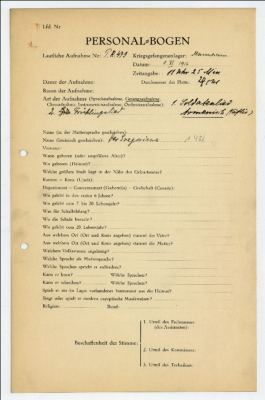 Lfd. Nr.
PERSONAL-BOGEN
Lautliche Aufnahme Nr.: Kriegsgefangenenlager:
Datum:
Zeitangabe: 11 Uhr 25 Min
Dauer der Aufnahme: Durchmesser der Platte:
Raum der Aufnahme:
Art der Aufnahme (Sprechaufnahme, Gesangsaufnahme, 1. Soldatenlied
Choraufnahme, Instrumentenaufnahme, Orchesteraufnahme):
2.
Name (in der Muttersprache geschrieben):
Name (lateinisch geschrieben):
Vorname:
Wann geboren (oder ungefähres Alter)?
Wo geboren (Heimat)?
Welche größere Stadt liegt in der Nähe des Geburtsortes?
Kanton — Kreis (Ujedz)
Departement — Gouvernement (Gubernija) — Grafschaft (County)
Wo gelebt in den ersten 6 Jahren?
Wo gelebt vom 7. bis 20. Lebensjahr?
Was für Schulbildung?
Wo die Schule besucht?
Wo gelebt vom 20. Lebensjahr?
Aus welchem Ort (Ort und Kreis angeben) stammt der Vater?
Aus welchem Ort (Ort und Kreis angeben) stammt die Mutter?
Welchem Volksstamm angehörig?
Welche Sprache als Muttersprache?
Welche Sprachen spricht er außerdem?
Kann er lesen? Welche Sprachen?
Kann er schreiben? Welche Sprachen?
Spielt er ein im Lager vorhandenes Instrument aus der Heimat?
Singt oder spielt er modern europäische Musikweisen?
Religion: Beruf:
Beschaffenheit der Stimme:
1. Urteil des Fachmannes
(des Assistenten):
2. Urteil des Kommissars:
3. Urteil des Technikers: